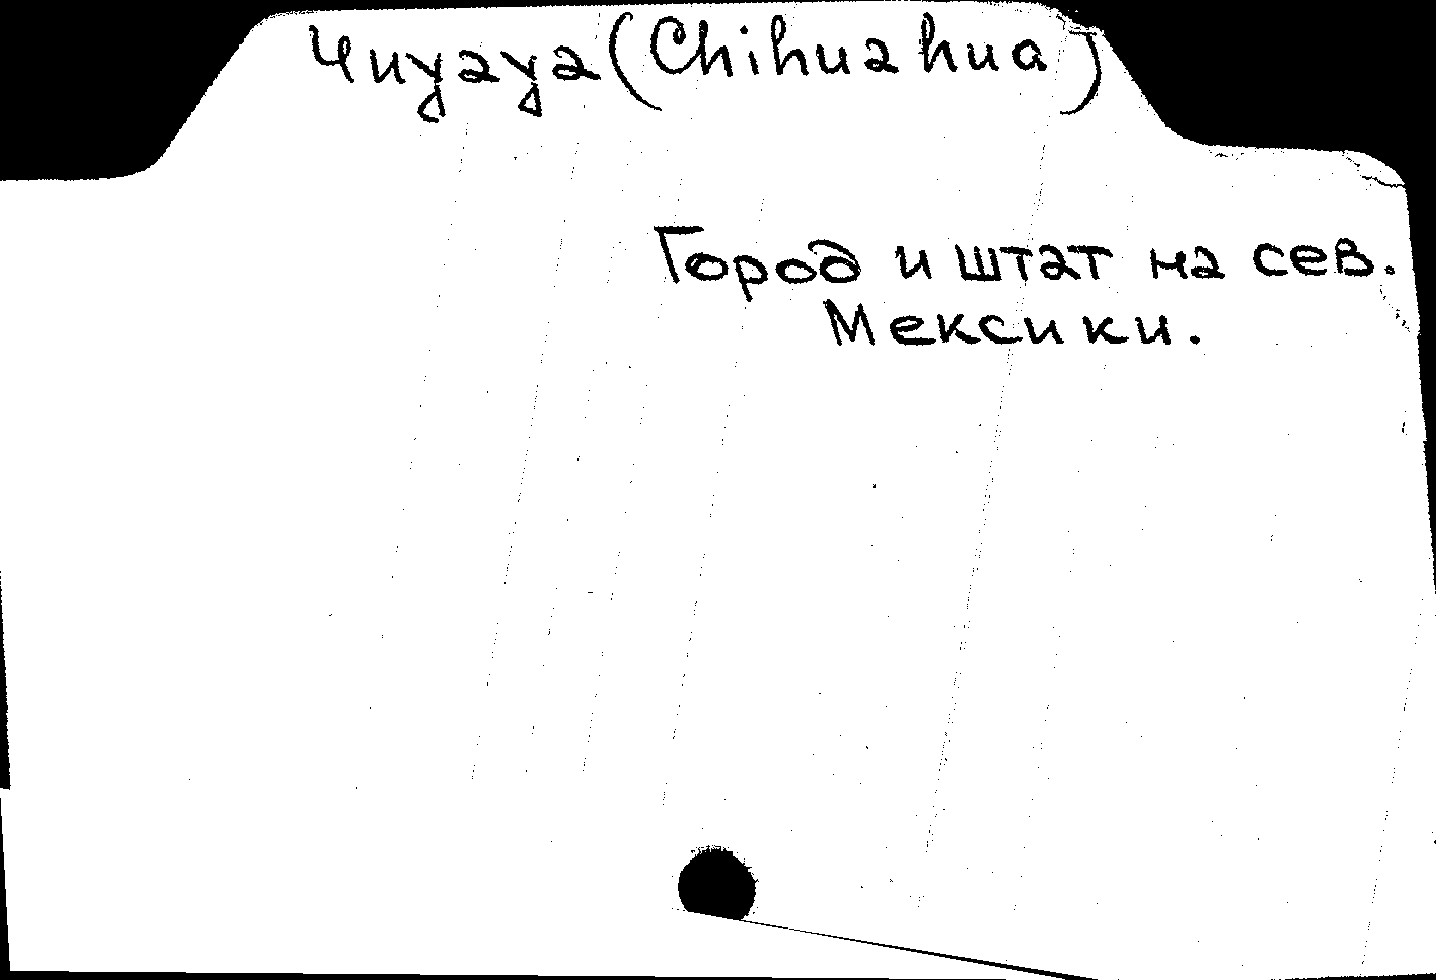 Чиуауа (Chihuahua)
Город и штат на сев.
Мексики.